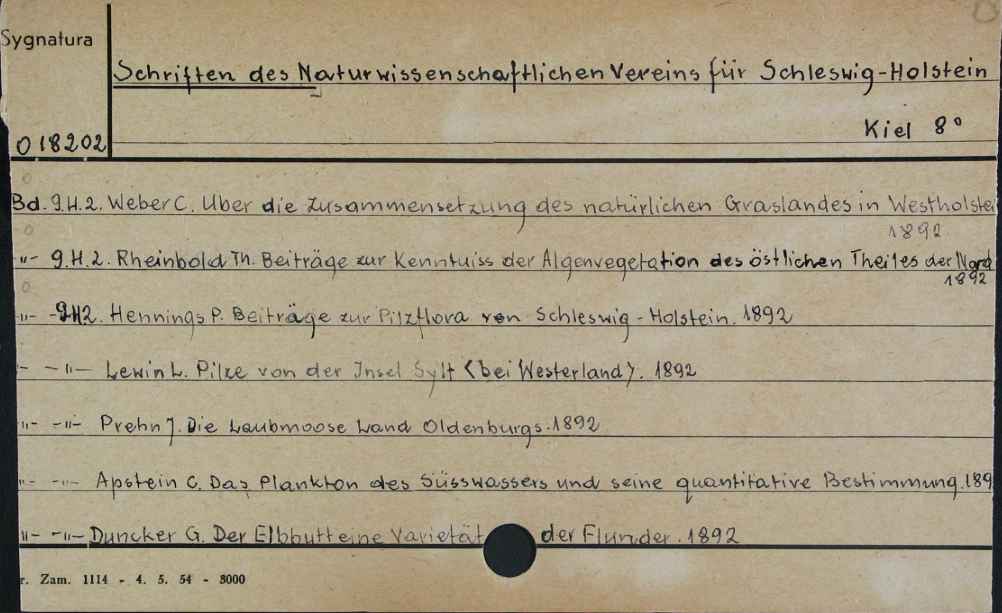 Sygnatura
Schriften des Naturwissenschaftlichen Vereins für Schleswig-Holstein
018202
Kiel 8°
Bd. 9.H.2. Weber C. Uber die Zusammensetzung des natürlichen Graslandes in Westholstei
1892
-"- 9.H.2. Rheinbold Th. Beiträge zur Kenntuiss der Algenvegetation des östlichen Theiles der Nord
1892
-"- -9H2. Hennings P. Beiträge zur Pilzflora von Schleswig-Holstein. 1892
"- -"- Lewin L. Pilze von der Insel Sylt <bei Westerland>. 1892
-"- -"- Prehn J. Die Laubmoose Land Oldenburgs. 1892
"- -"- Apstein C. Das Plankton des Süsswassers und seine quantitative Bestimmung. 189
-"- -"- Duncker G. Der Elbbutt eine Varietät der Flunder. 1892
r. Zam. 1114 - 4. 5. 54 - 3000